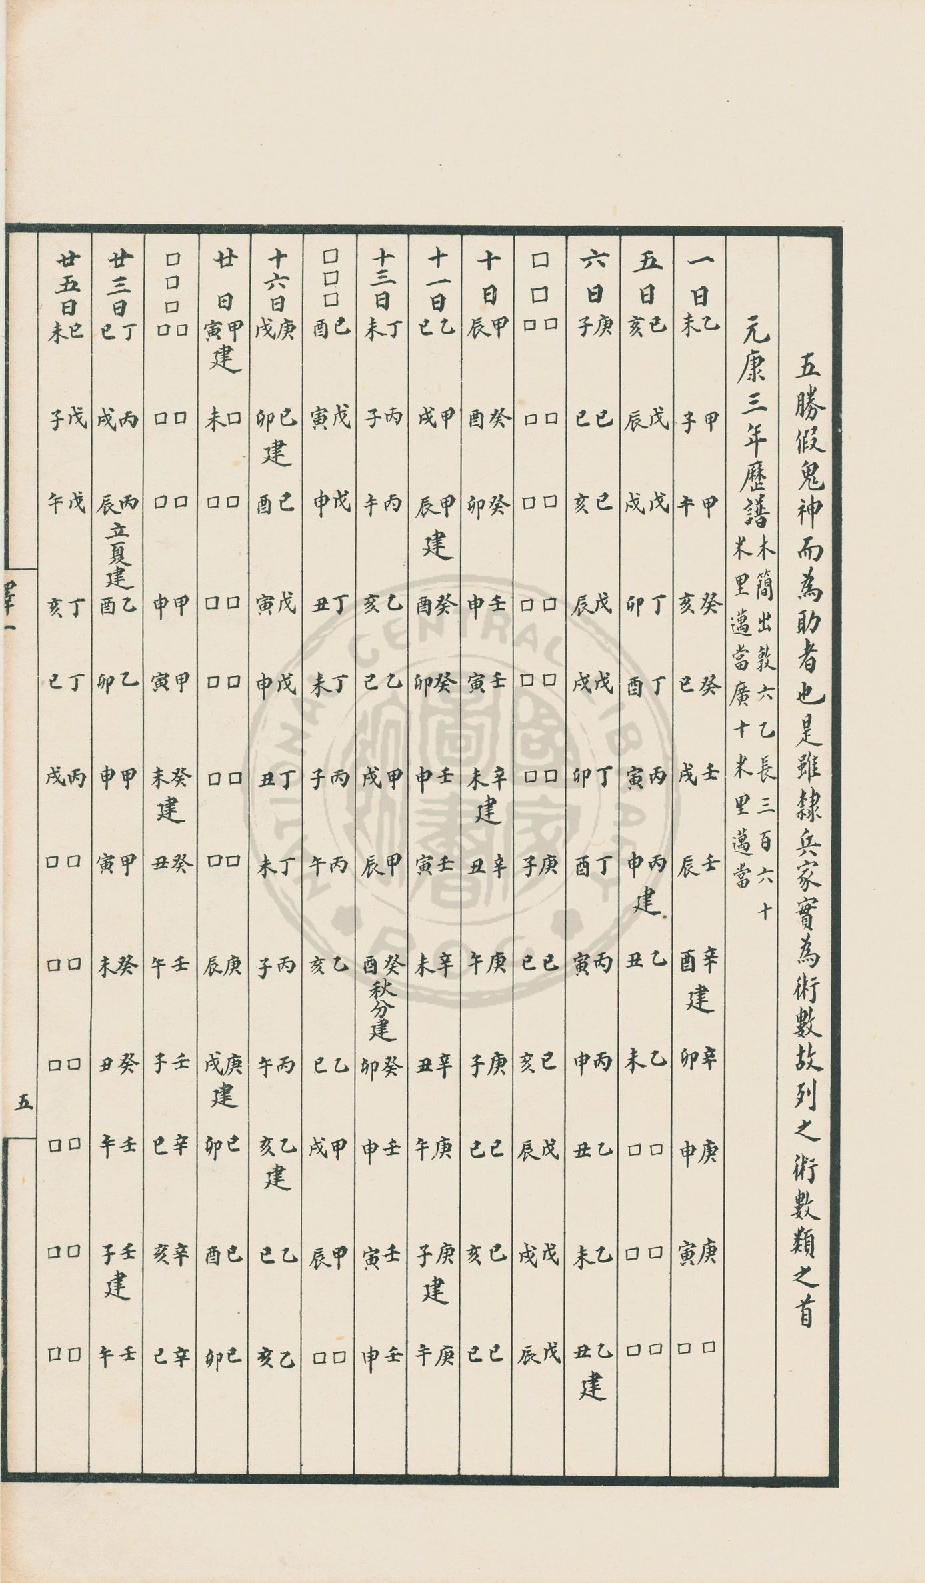 五勝假鬼神而為助者也是雖隸兵家實為術數故列之術數類之首
元康三年歷譜
木簡出敦六乙長三百六十
米里邁當廣十米里邁當
一日 乙未 甲子 甲午 癸亥 癸巳 壬戌 壬辰 辛酉建 辛卯 庚申 庚寅 □□
五日 己亥 戊辰 戊戌 丁卯 丁酉 丙寅 丙申建 乙丑 乙未 □□ □□ □□
六日 庚子 己巳 己亥 戊辰 戊戌 丁卯 丁酉 丙寅 丙申 乙丑 乙未 乙丑建
□□ □□ □□ □□ □□ □□ □□ 庚子 己巳 己亥 戊辰 戊戌 戊辰
十日 甲辰 癸酉 癸卯 壬申 壬寅 辛未建 辛丑 庚午 庚子 己巳 己亥 己巳
十一日 乙巳 甲戌 甲辰建 癸酉 癸卯 壬申 壬寅 辛未 辛丑 庚午 庚子建 庚午
十三日 丁未 丙子 丙午 乙亥 乙巳 甲戌 甲辰 癸酉秋分建 癸卯 壬申 壬寅 壬申
□□□ 己酉 戊寅 戊申 丁丑 丁未 丙子 丙午 乙亥 乙巳 甲戌 甲辰 □□
十六日 庚戌 己卯建 己酉 戊寅 戊申 丁丑 丁未 丙子 丙午 乙亥建 乙巳 乙亥
廿日 甲寅建 □未 □□ □□ □□ □□ □□ 庚辰 庚戌建 己卯 己酉 己卯
□□□ □□ □□ □□ 甲申 甲寅 癸未建 癸丑 壬午 壬子 辛巳 辛亥 辛巳
廿三日 丁巳 丙戌 丙辰立夏建 乙酉 乙卯 甲申 甲寅 癸未 癸丑 壬午 壬子建 壬午
廿五日 己未 戊子 戊午 丁亥 丁巳 丙戌 □□ □□ □□ □□ □□ □□
五
NATIONAL CENTRAL LIBRARY
R.O.C.